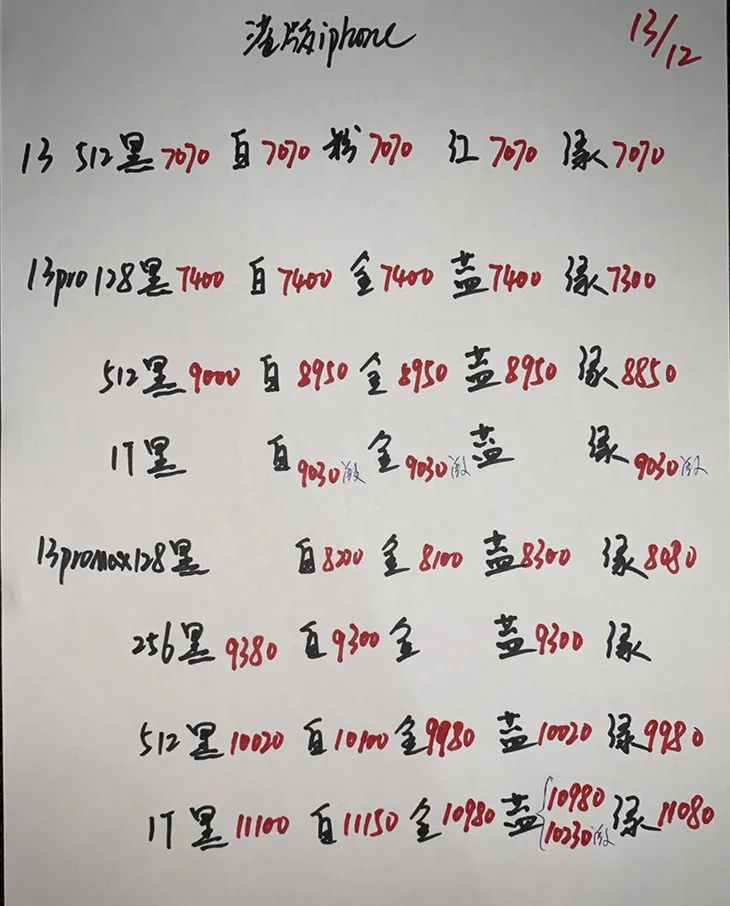 港版iphone 13/12
13 512黑7070 白7070 粉7070 红7070 绿7070
13pro128黑7400 白7400 金7400 蓝7400 绿7300
512黑9000 白8950 金8950 蓝8950 绿8850
1T黑 白9030激 金9030激 蓝 绿9030激
13promax128黑 白8200 金8100 蓝8300 绿8080
256黑9380 白9300金 蓝9300 绿
512黑10020 白10100金9980 蓝10020 绿9980
1T黑11100 白11150金10980 蓝{10980 10230激 绿11080